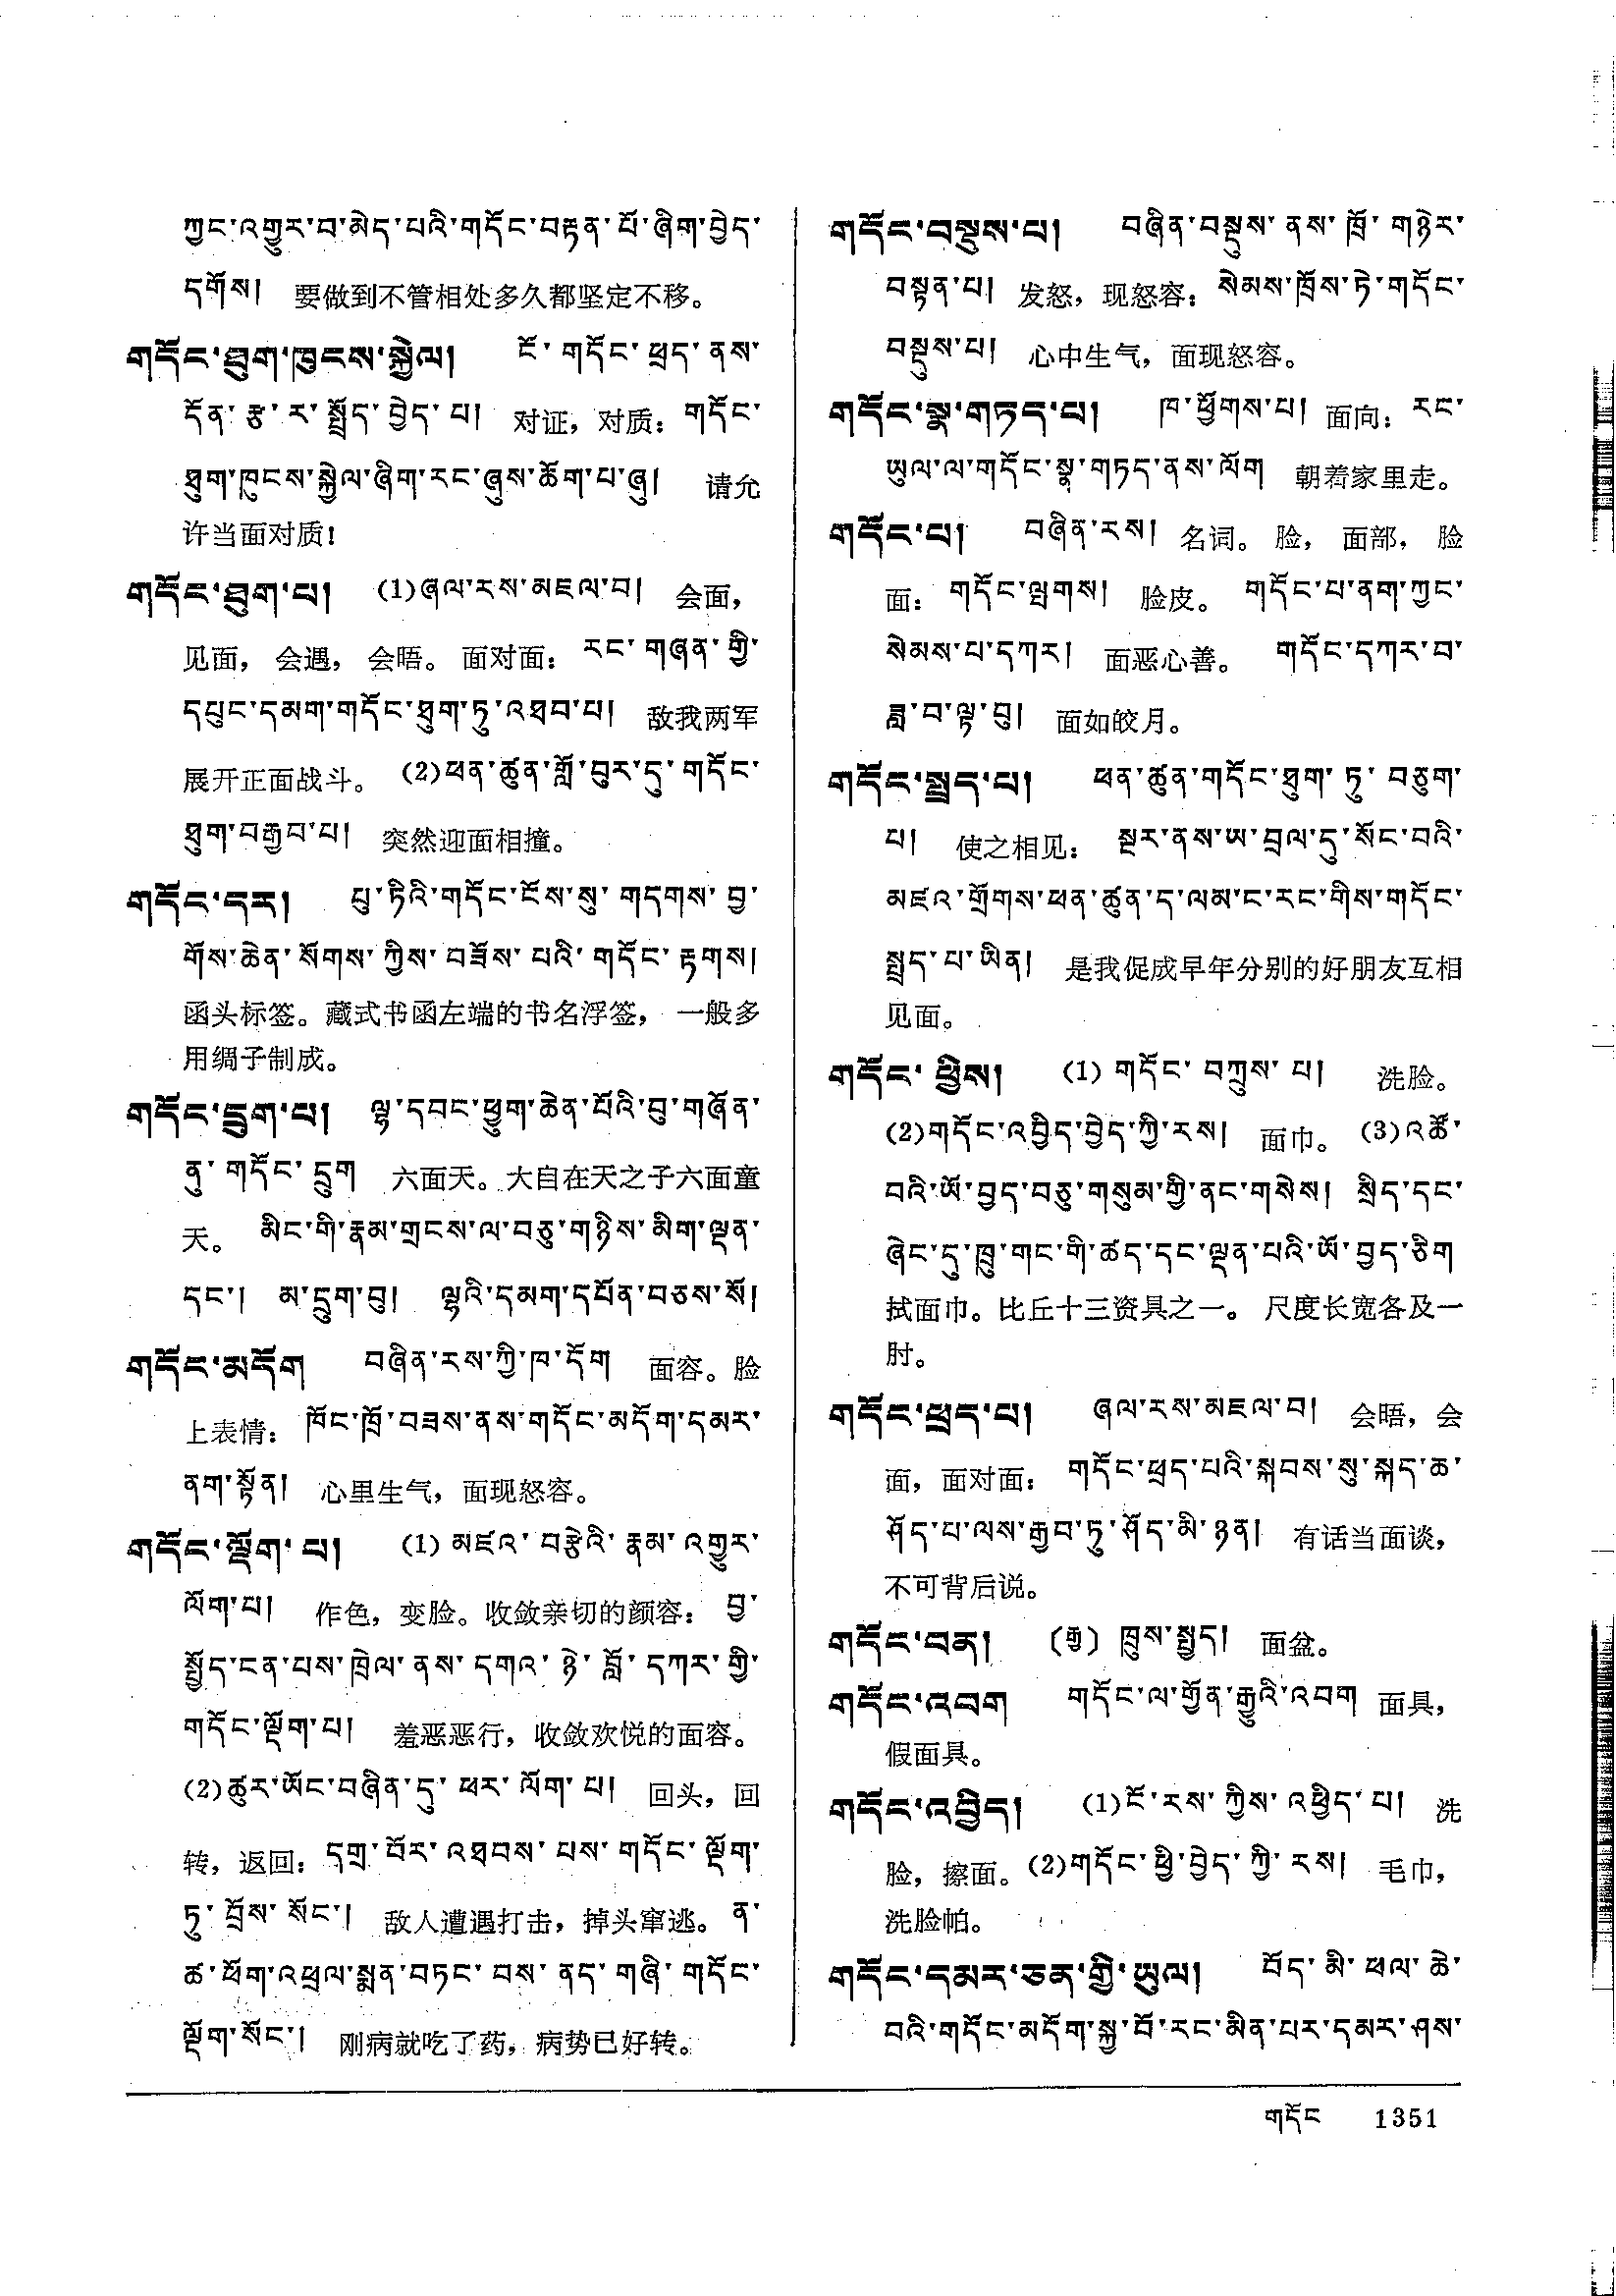 ཀྱང་འགྱུར་བ་མེད་པའི་གདོང་བརྟན་པོ་ཞིག་བྱེད་
དགོས། 要做到不管相处多久都坚定不移。
གདོང་ཐུག་ཁུངས་སྐྱེལ། ངོ་གདོང་ཕྲད་ནས་
དོན་རྩ་ར་སྤྲོད་བྱེད་པ། 对证，对质：གདོང་
ཐུག་ཁུངས་སྐྱེལ་ཞིག་རང་ཞུས་ཆོག་པ་ཞུ། 请允
许当面对质！
གདོང་ཐུག་པ། (1)ཞལ་རས་མཇལ་བ། 会面，
见面，会遇，会晤。面对面：རང་གཞན་གྱི་
དཔུང་དམག་གདོང་ཐུག་ཏུ་འཐབ་པ། 敌我两军
展开正面战斗。(2)ཕན་ཚུན་གློ་བུར་དུ་གདོང་
ཐུག་བརྒྱབ་པ། 突然迎面相撞。
གདོང་དར། པུ་ཏིའི་གདོང་ངོས་སུ་གདགས་བྱ་
གོས་ཆེན་སོགས་ཀྱིས་བཟོས་པའི་གདོང་རྟགས།
函头标签。藏式书函左端的书名浮签，一般多
用绸子制成。
གདོང་དྲུག་པ། ལྷ་དབང་ཕྱུག་ཆེན་པོའི་བུ་གཞོན་
ནུ་གདོང་དྲུག 六面天。大自在天之子六面童
天。 མིང་གི་རྣམ་གྲངས་ལ་བཅུ་གཉིས་མིག་ལྡན་
དང་། མ་དྲུག་བུ། ལྷའི་དམག་དཔོན་བཅས་སོ།
གདོང་མདོག བཞིན་རས་ཀྱི་ཁ་དོག 面容。脸
上表情：ཁོང་ཁྲོ་བཟས་ནས་གདོང་མདོག་དམར་
ནག་སྟོན། 心里生气，面现怒容。
གདོང་ལྡོག་པ། (1)མཛའ་བརྩེའི་རྣམ་འགྱུར་
ལོག་པ། 作色，变脸。收敛亲切的颜容：བྱ་
སྤྱོད་ངན་པས་ཁྲེལ་ནས་དགའ་ཉེ་བློ་དཀར་གྱི་
གདོང་ལྡོག་པ། 羞恶恶行，收敛欢悦的面容。
(2)ཚུར་ཡོང་བཞིན་དུ་ཕར་ལོག་པ། 回头，回
转，返回：དགྲ་བོར་འཐབས་པས་གདོང་ལྡོག་
ཏུ་བྲོས་སོང་། 敌人遭遇打击，掉头窜逃。ན་
ཚ་ཕོག་འཕྲལ་སྨན་བཏང་བས་ནད་གཞི་གདོང་
ལྡོག་སོང་། 刚病就吃了药，病势已好转。
གདོང་བསྡུས་པ། བཞིན་བསྡུས་ནས་ཁྲོ་གཉེར་
བསྟན་པ། 发怒，现怒容：སེམས་ཁྲོས་ཏེ་གདོང་
བསྡུས་པ། 心中生气，面现怒容。
གདོང་སྣ་གཏད་པ། ཁ་ཕྱོགས་པ། 面向：རང་
ཡུལ་ལ་གདོང་སྣ་གཏད་ནས་ལོག 朝着家里走。
གདོང་པ། བཞིན་རས། 名词。脸，面部，脸
面：གདོང་ལྤགས། 脸皮。 གདོང་པ་ནག་ཀྱང་
སེམས་པ་དཀར། 面恶心善。 གདོང་དཀར་བ་
ཟླ་བ་ལྟ་བུ། 面如皎月。
གདོང་སྤྲད་པ། ཕན་ཚུན་གདོང་ཐུག་ཏུ་བཅུག་
པ། 使之相见：སྔར་ནས་ཡ་བྲལ་དུ་སོང་བའི་
མཛའ་གྲོགས་ཕན་ཚུན་ད་ལམ་ང་རང་གིས་གདོང་
སྤྲད་པ་ཡིན། 是我促成早年分别的好朋友互相
见面。
གདོང་ཕྱིས། (1)གདོང་བཀྲུས་པ། 洗脸。
(2)གདོང་འབྱིད་བྱེད་ཀྱི་རས། 面巾。(3)འཚོ་
བའི་ཡོ་བྱད་བཅུ་གསུམ་གྱི་ནང་གསེས། སྲིད་དང་
ཞེང་དུ་ཁྲུ་གང་གི་ཚད་དང་ལྡན་པའི་ཡོ་བྱད་ཅིག
拭面巾。比丘十三资具之一。尺度长宽各及一
肘。
གདོང་ཕྲད་པ། ཞལ་རས་མཇལ་བ། 会晤，会
面，面对面：གདོང་ཕྲད་པའི་སྐབས་སུ་སྐད་ཆ་
ཤོད་པ་ལས་རྒྱབ་ཏུ་ཤོད་མི་ཉན། 有话当面谈，
不可背后说。
གདོང་བན། (རྒྱ) ཁྲུས་སྤྱད། 面盆。
གདོང་འབག གདོང་ལ་གྱོན་རྒྱུའི་འབག 面具，
假面具。
གདོང་འཕྱིད། (1)ངོ་རས་ཀྱིས་འཕྱིད་པ། 洗
脸，擦面。(2)གདོང་ཕྱི་བྱེད་ཀྱི་རས། 毛巾，
洗脸帕。
གདོང་དམར་ཅན་གྱི་ཡུལ། བོད་མི་ཕལ་ཆེ་
བའི་གདོང་མདོག་སྐྱ་བོ་རང་མིན་པར་དམར་ཤས་
གདོང 1351